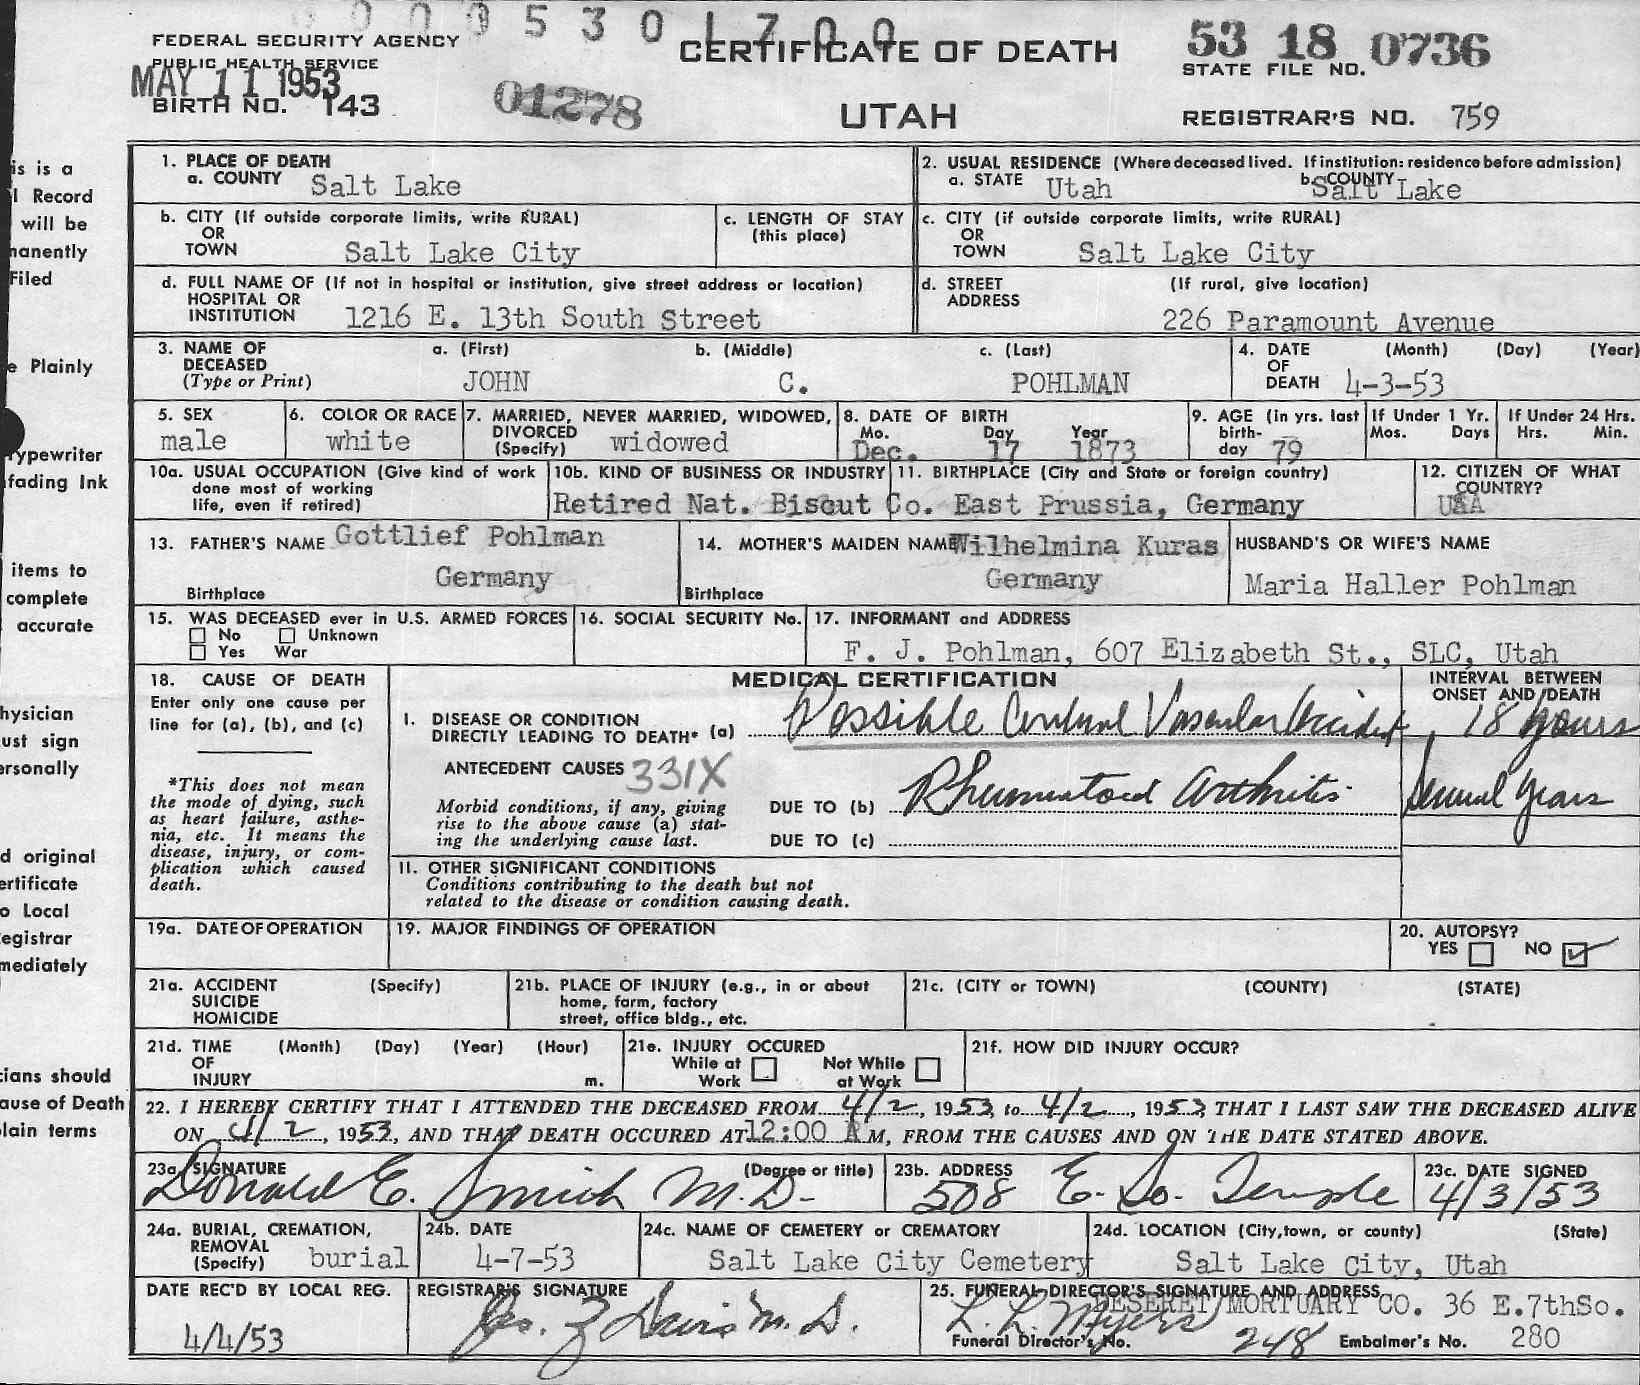 000 5 3 0 1 7 0 0
FEDERAL SECURITY AGENCY
PUBLIC HEALTH SERVICE
MAY 11 1953
BIRTH NO. 143
01278
CERTIFICATE OF DEATH
UTAH
53 18 0736
STATE FILE NO.
REGISTRAR'S NO. 759
is is a
l Record
will be
manently
Filed
e Plainly
Typewriter
fading Ink
items to
complete
accurate
hysician
ust sign
ersonally
d original
ertificate
o Local
egistrar
mediately
cians should
ause of Death
lain terms
1. PLACE OF DEATH
a. COUNTY Salt Lake
2. USUAL RESIDENCE (Where deceased lived. If institution: residence before admission)
a. STATE Utah b. COUNTY Salt Lake
b. CITY (If outside corporate limits, write RURAL)
OR
TOWN Salt Lake City
c. LENGTH OF STAY
(this place)
c. CITY (if outside corporate limits, write RURAL)
OR
TOWN Salt Lake City
d. FULL NAME OF (If not in hospital or institution, give street address or location)
HOSPITAL OR
INSTITUTION 1216 E. 13th South Street
d. STREET (If rural, give location)
ADDRESS
226 Paramount Avenue
3. NAME OF a. (First) b. (Middle) c. (Last)
DECEASED
(Type or Print) JOHN C. POHLMAN
4. DATE (Month) (Day) (Year)
OF
DEATH 4-3-53
5. SEX
male
6. COLOR OR RACE
white
7. MARRIED, NEVER MARRIED, WIDOWED,
DIVORCED
(Specify) widowed
8. DATE OF BIRTH
Mo. Day Year
Dec. 17 1873
9. AGE (in yrs. last
birth-
day 79
If Under 1 Yr.
Mos. Days
If Under 24 Hrs.
Hrs. Min.
10a. USUAL OCCUPATION (Give kind of work
done most of working
life, even if retired)
10b. KIND OF BUSINESS OR INDUSTRY
Retired Nat. Biscut Co.
11. BIRTHPLACE (City and State or foreign country)
East Prussia, Germany
12. CITIZEN OF WHAT
COUNTRY?
USA
13. FATHER'S NAME Gottlief Pohlman
Germany
Birthplace
14. MOTHER'S MAIDEN NAME Wilhelmina Kuras
Germany
Birthplace
HUSBAND'S OR WIFE'S NAME
Maria Haller Pohlman
15. WAS DECEASED ever in U.S. ARMED FORCES
No Unknown
Yes War
16. SOCIAL SECURITY No.
17. INFORMANT and ADDRESS
F. J. Pohlman, 607 Elizabeth St., SLC, Utah
18. CAUSE OF DEATH
Enter only one cause per
line for (a), (b), and (c)
*This does not mean
the mode of dying, such
as heart failure, asthe-
nia, etc. It means the
disease, injury, or com-
plication which caused
death.
MEDICAL CERTIFICATION
INTERVAL BETWEEN
ONSET AND DEATH
I. DISEASE OR CONDITION
DIRECTLY LEADING TO DEATH* (a) Possible Cerebral Vascular Accident, 18 hours
ANTECEDENT CAUSES 331X
Morbid conditions, if any, giving
rise to the above cause (a) stat-
ing the underlying cause last.
DUE TO (b) Rheumatoid Arthritis. Several years
DUE TO (c)
II. OTHER SIGNIFICANT CONDITIONS
Conditions contributing to the death but not
related to the disease or condition causing death.
19a. DATE OF OPERATION
19. MAJOR FINDINGS OF OPERATION
20. AUTOPSY?
YES NO ✓
21a. ACCIDENT (Specify)
SUICIDE
HOMICIDE
21b. PLACE OF INJURY (e.g., in or about
home, farm, factory
street, office bldg., etc.
21c. (CITY or TOWN) (COUNTY) (STATE)
21d. TIME (Month) (Day) (Year) (Hour)
OF
INJURY m.
21e. INJURY OCCURED
While at Not While
Work at Work
21f. HOW DID INJURY OCCUR?
22. I HEREBY CERTIFY THAT I ATTENDED THE DECEASED FROM 4/2, 1953, to 4/2, 1953, THAT I LAST SAW THE DECEASED ALIVE
ON 4/2, 1953, AND THAT DEATH OCCURED AT 12:00 A M, FROM THE CAUSES AND ON THE DATE STATED ABOVE.
23a. SIGNATURE (Degree or title)
Donald E. Smith M.D.
23b. ADDRESS
508 E. So. Temple
23c. DATE SIGNED
4/3/53
24a. BURIAL, CREMATION,
REMOVAL
(Specify) burial
24b. DATE
4-7-53
24c. NAME OF CEMETERY or CREMATORY
Salt Lake City Cemetery
24d. LOCATION (City, town, or county) (State)
Salt Lake City, Utah
DATE REC'D BY LOCAL REG.
4/4/53
REGISTRAR'S SIGNATURE
Jas. Z Davis M.D.
25. FUNERAL DIRECTOR'S SIGNATURE AND ADDRESS
DESERET MORTUARY CO. 36 E.7thSo.
L. L. Myers
Funeral Director's No. 248 Embalmer's No. 280